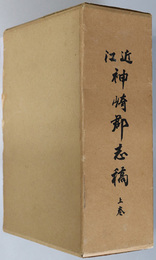 近江
神崎郡志稿
上巻